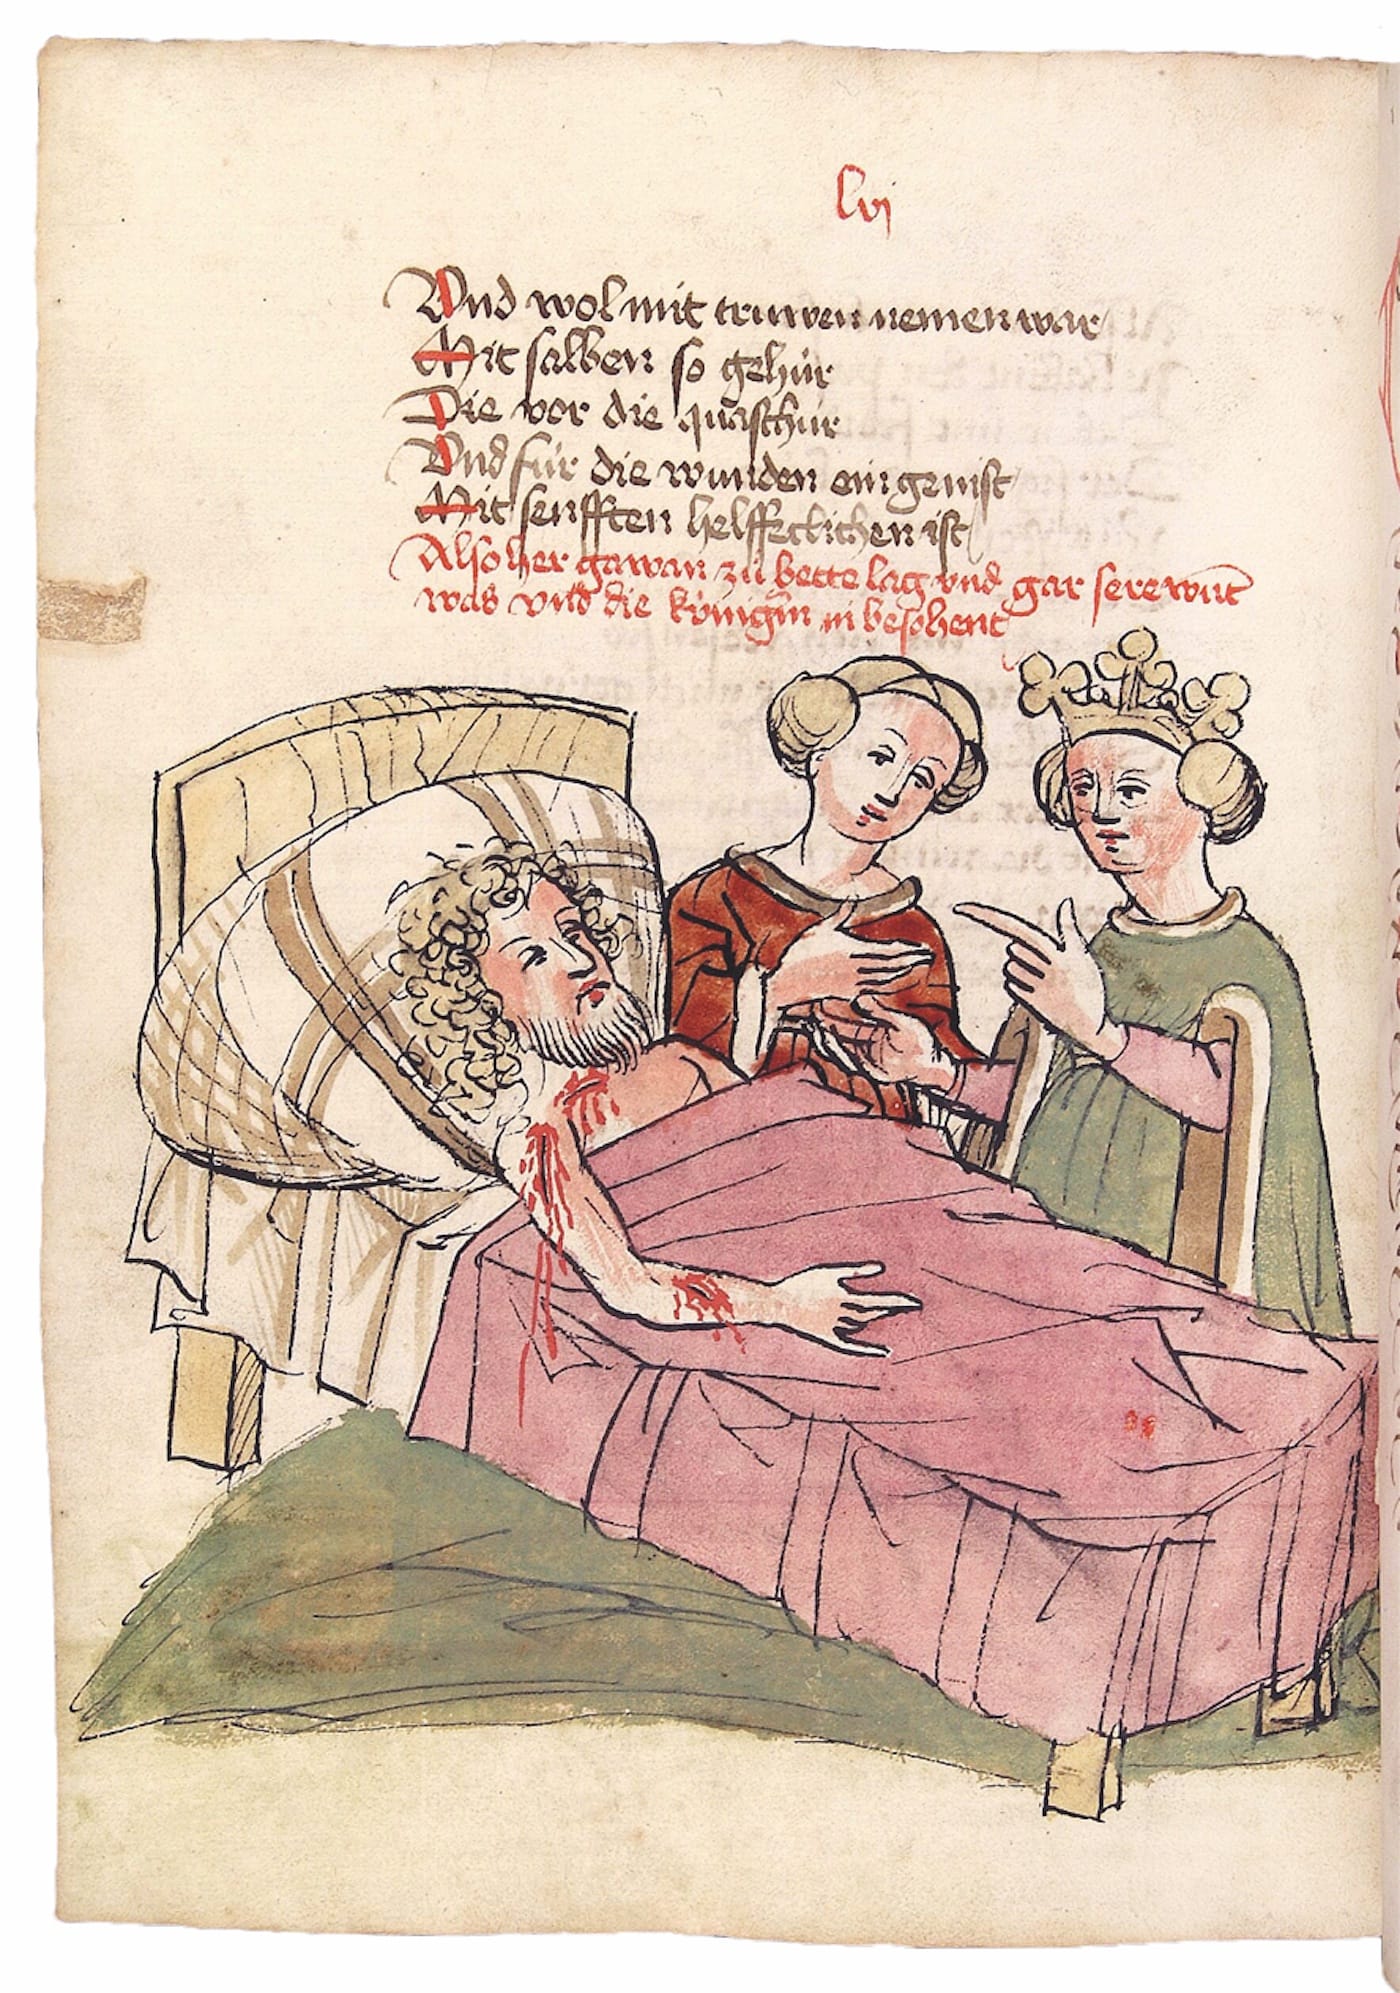 lvj
Vnd wol mit truwen nemen war
Mit salben so gehúr
Die vor die quaschúr
Vnd fúr die wunden ein genist
Mit senfften helffeclichen ist
Also her gawan zü bette lag vnd gar sere wnt
was vnd die kúnigin in besohent